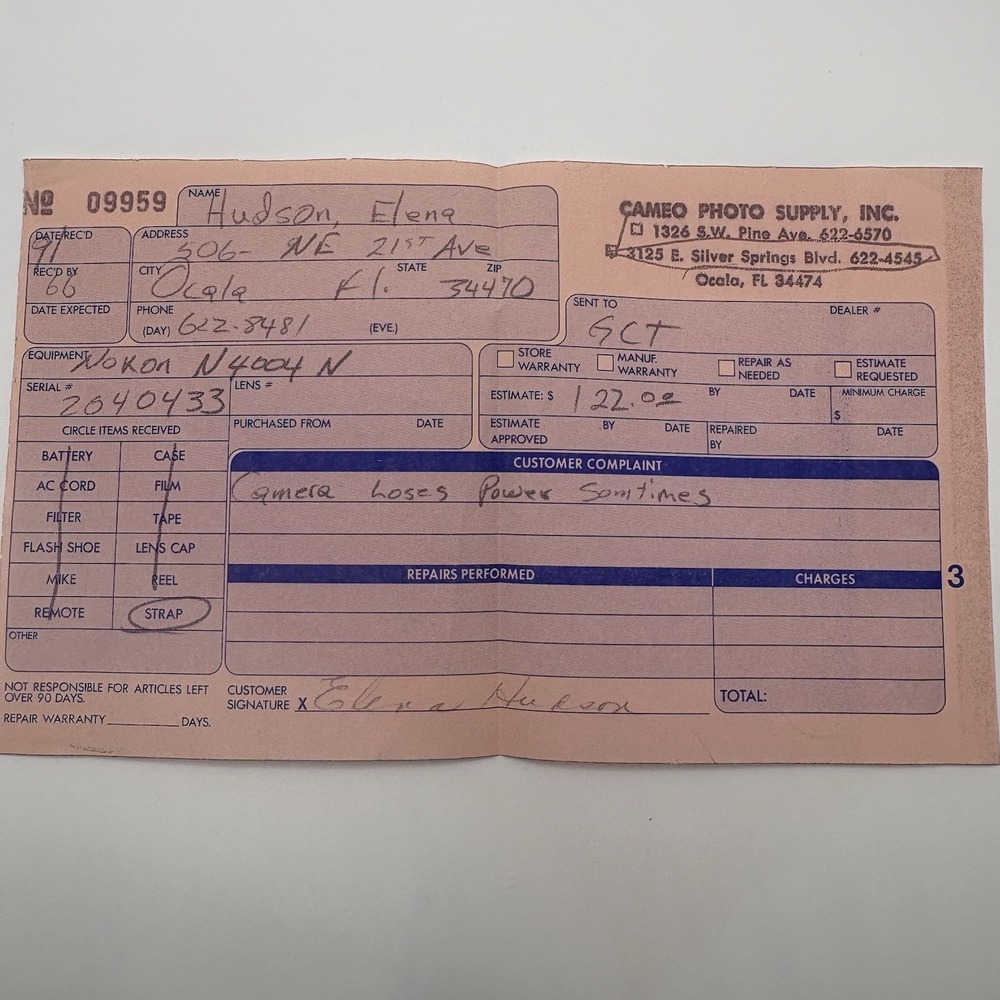 Nº 09959
NAME Hudson, Elena
CAMEO PHOTO SUPPLY, INC.
1326 S.W. Pine Ave. 622-6570
3125 E. Silver Springs Blvd. 622-4545
Ocala, FL 34474
DATE REC'D 91
ADDRESS 506- NE 21ST Ave
REC'D BY 66
CITY Ocala STATE Fl. ZIP 34470
DATE EXPECTED
PHONE (DAY) 622-8481 (EVE.)
SENT TO GCT DEALER #
EQUIPMENT Nokon N4004 N
STORE WARRANTY MANUF. WARRANTY REPAIR AS NEEDED ESTIMATE REQUESTED
SERIAL # 2040433 LENS #
ESTIMATE: $ 122.00 BY DATE MINIMUM CHARGE $
CIRCLE ITEMS RECEIVED
PURCHASED FROM DATE
ESTIMATE APPROVED BY DATE REPAIRED BY DATE
BATTERY CASE
AC CORD FILM
FILTER TAPE
FLASH SHOE LENS CAP
MIKE REEL
REMOTE STRAP
OTHER
CUSTOMER COMPLAINT
Camera Loses Power Somtimes
REPAIRS PERFORMED CHARGES
3
NOT RESPONSIBLE FOR ARTICLES LEFT
OVER 90 DAYS.
REPAIR WARRANTY DAYS.
CUSTOMER SIGNATURE X Elena Hudson
TOTAL: